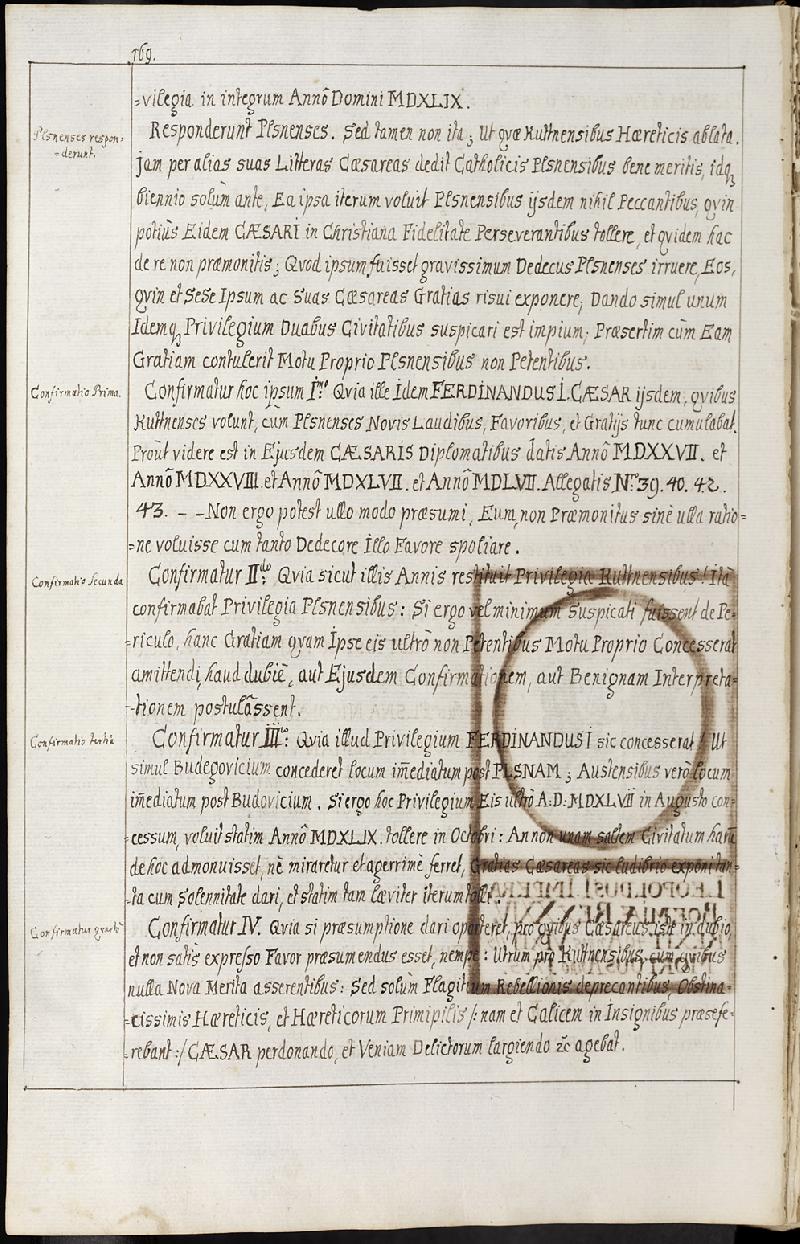 169.
=vilegia in integrum Annô Domini MDXLIX.
Plsnenses respon=
=derunt.
Responderunt Plsnenses. Sed tamen non ita; Ut qvæ Kuttnensibus Hæreticis ablata.
Jam per alias suas Litteras Cæsareas dedit Catholicis Plsnensibus bene meritis, idq;
biennio solùm ante, Ea ipsa iterum voluit Plsnensibus ijsdem nihil Peccantibus, qvin
potiùs Eidem CÆSARI in Christiana Fidelitate Perseverantibus tollere, et qvidem hac
de re non præmonitis; Qvod ipsum fuisset gravissimum Dedecus Plsnenses irruere, Eos,
qvin et Sese Ipsum ac Suas Cæsareas Gratias risui exponere; Dando simul unum
Idemq; Privilegium Duabus Civitatibus suspicari est impium; Præsertim cùm Eam
Gratiam contulerit Motu Proprio Plsnensibus non Petentibus.
Confirmatio Prima.
Confirmatur hoc ipsum I.mo Qvia ille Idem FERDINANDUS I. CÆSAR ijsdem, qvibus
Kuttnenses volunt, cùm Plsnenses Novis Laudibus, Favoribus, et Gratijs tunc cumulabat.
Proùt videre est in Ejusdem CÆSARIS Diplomatibus datis Annô MDXXVII. et
Annô MDXXVIII. et Annô MDXLVII. et Annô MDLVII. Allegatis Nris 39. 40. 42.
43. - - Non ergo potest ullo modo præsumi, Eum, non Præmonitus sinè ulla ratio=
=ne voluisse cum tanto Dedecore Illo Favore spoliare.
Confirmatio Secunda
Confirmatur II.do Qvia sicut illis Annis restituit Privilegia Kuttnensibus! Ità
confirmabat Privilegia Plsnensibus: Si ergo vel minimum Suspicati fuissent de Pe=
=riculo, hanc Gratiam qvam Ipse eis ultrò non Petentibus Motu Proprio Concesserat
amittendi, haud dubiè, aut Ejusdem Confirmationem, aut Benignam Interpreta=
=tionem postulâssent.
Confirmatio tertia
Confirmatur III.º Qvia illud Privilegium FERDINANDUS I sic concesserat! Ut
simul Budegovicium concederet locum im̃ediatum post PLSNAM; Austensibus verò locum
im̃ediatum post Budovicium. Si ergo hoc Privilegium Eis ultrò A: D: MDXLVII in Augusto con=
cessum, voluit statim Annô MDXLIX. tollere in Octobri: Annon unam saltem Civitatum harũ
de hoc admonuisset, nè miraretur et agerrimè ferret, Gratias Cæsareas sic ludibrio exponi tan=
=ta cum Solennitate dari, et statim tam læviter iterum tolli.
Confirmatur qvartò
Confirmatur IV. Qvia si præsumptione dari oporteret, pro qvibus Cæsareus iste in dubio,
et non satis expresso Favor præsumendus esset, nempè: Utrum pro Kuttnensibus, cum qvibus
nulla Nova Merita asserentibus: Sed solùm Flagitium Rebellionis deprecantibus Obstina=
=cissimis Hæreticis, et Hæreticorum Primipilis /: nam et Calicem in Insignibus præsefe=
=rebant:/ CÆSAR perdonando, et Veniam Delictorum largiendo &c agebat.